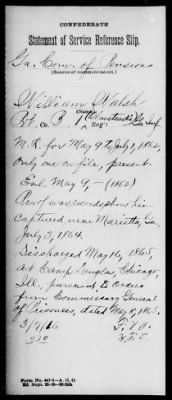 CONFEDERATE
Statement of Service Reference Slip.
Ga. Com. of Pensions
(Source of communication.)
William Walsh
(Name)
Pt. Co. B. 1 (Olmstead's) Ga. Inf
Reg't
M. R. for May 9 to July 1, 1862,
only one on file, present.
Enl. May 9, - (1862)
Pr. of war records show him
Captured near Marietta, Ga,
July 3, 1864.
Discharged May 16, 1865,
at Camp Douglas, Chicago,
Ill., pursuant to orders
from Commissary General
of Prisoners, dated May 8, 1865.
Form No.
A. G. O.